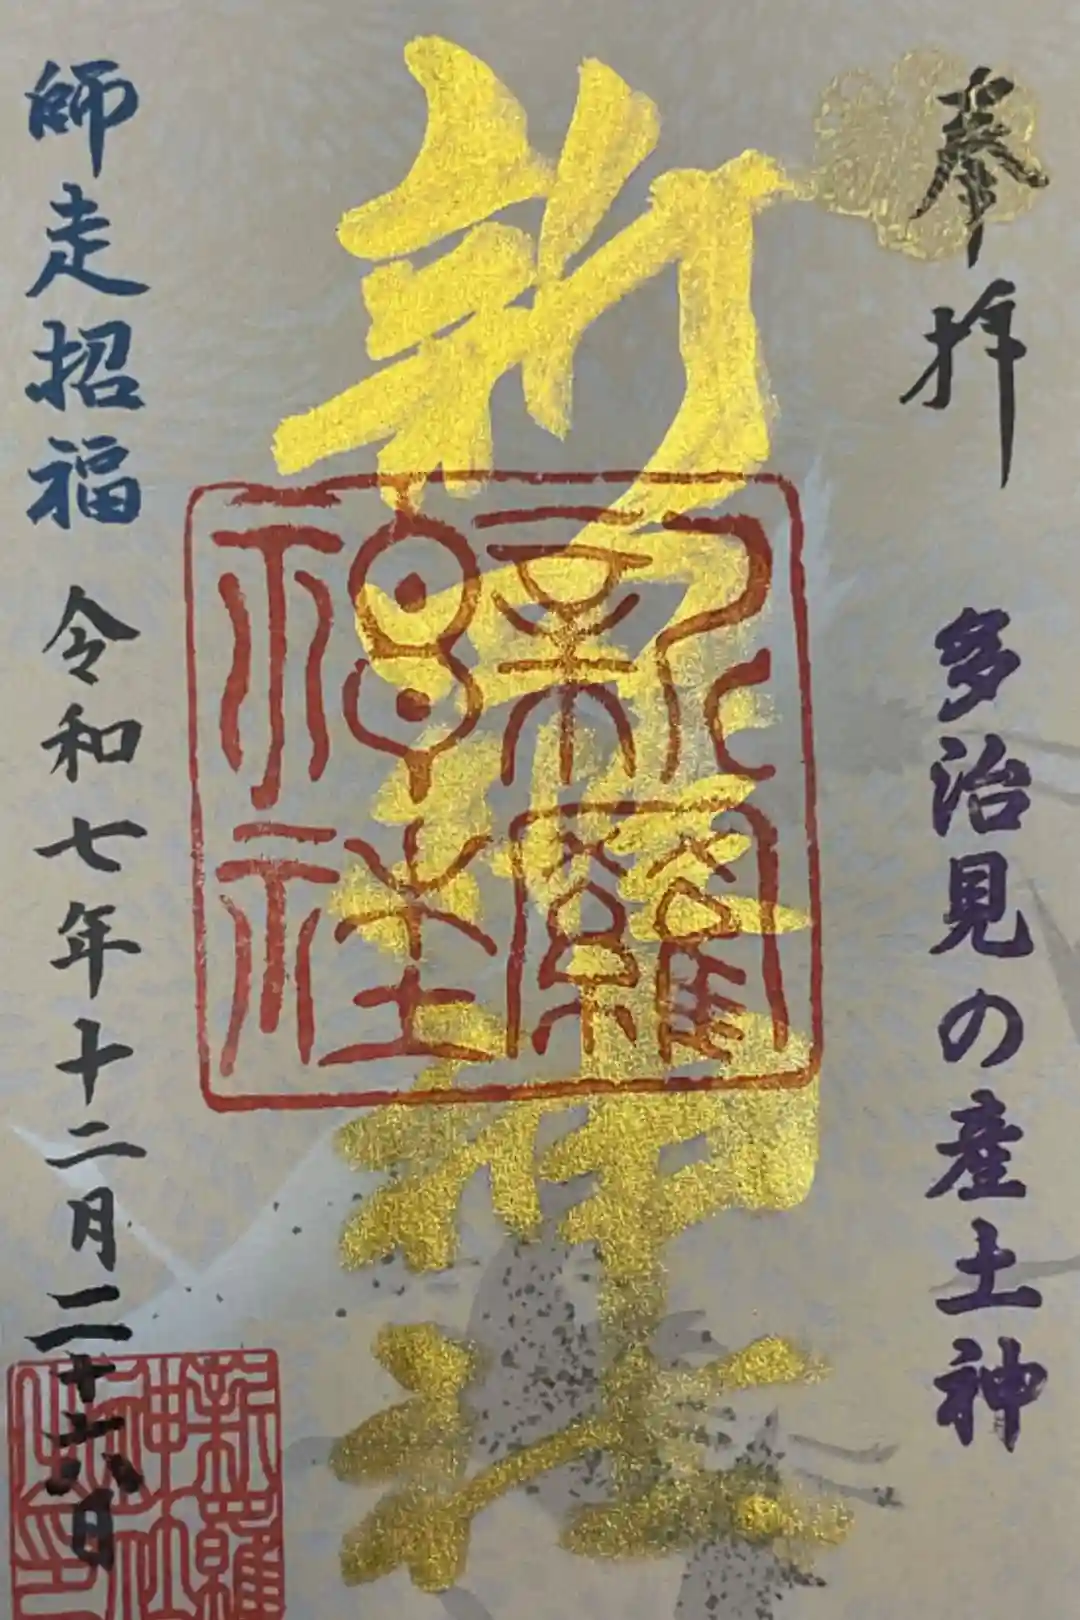 奉拝
多治見の産土神
新羅神社
新羅
神社
師走招福
令和七年十二月二十六日
新羅
神社
之印